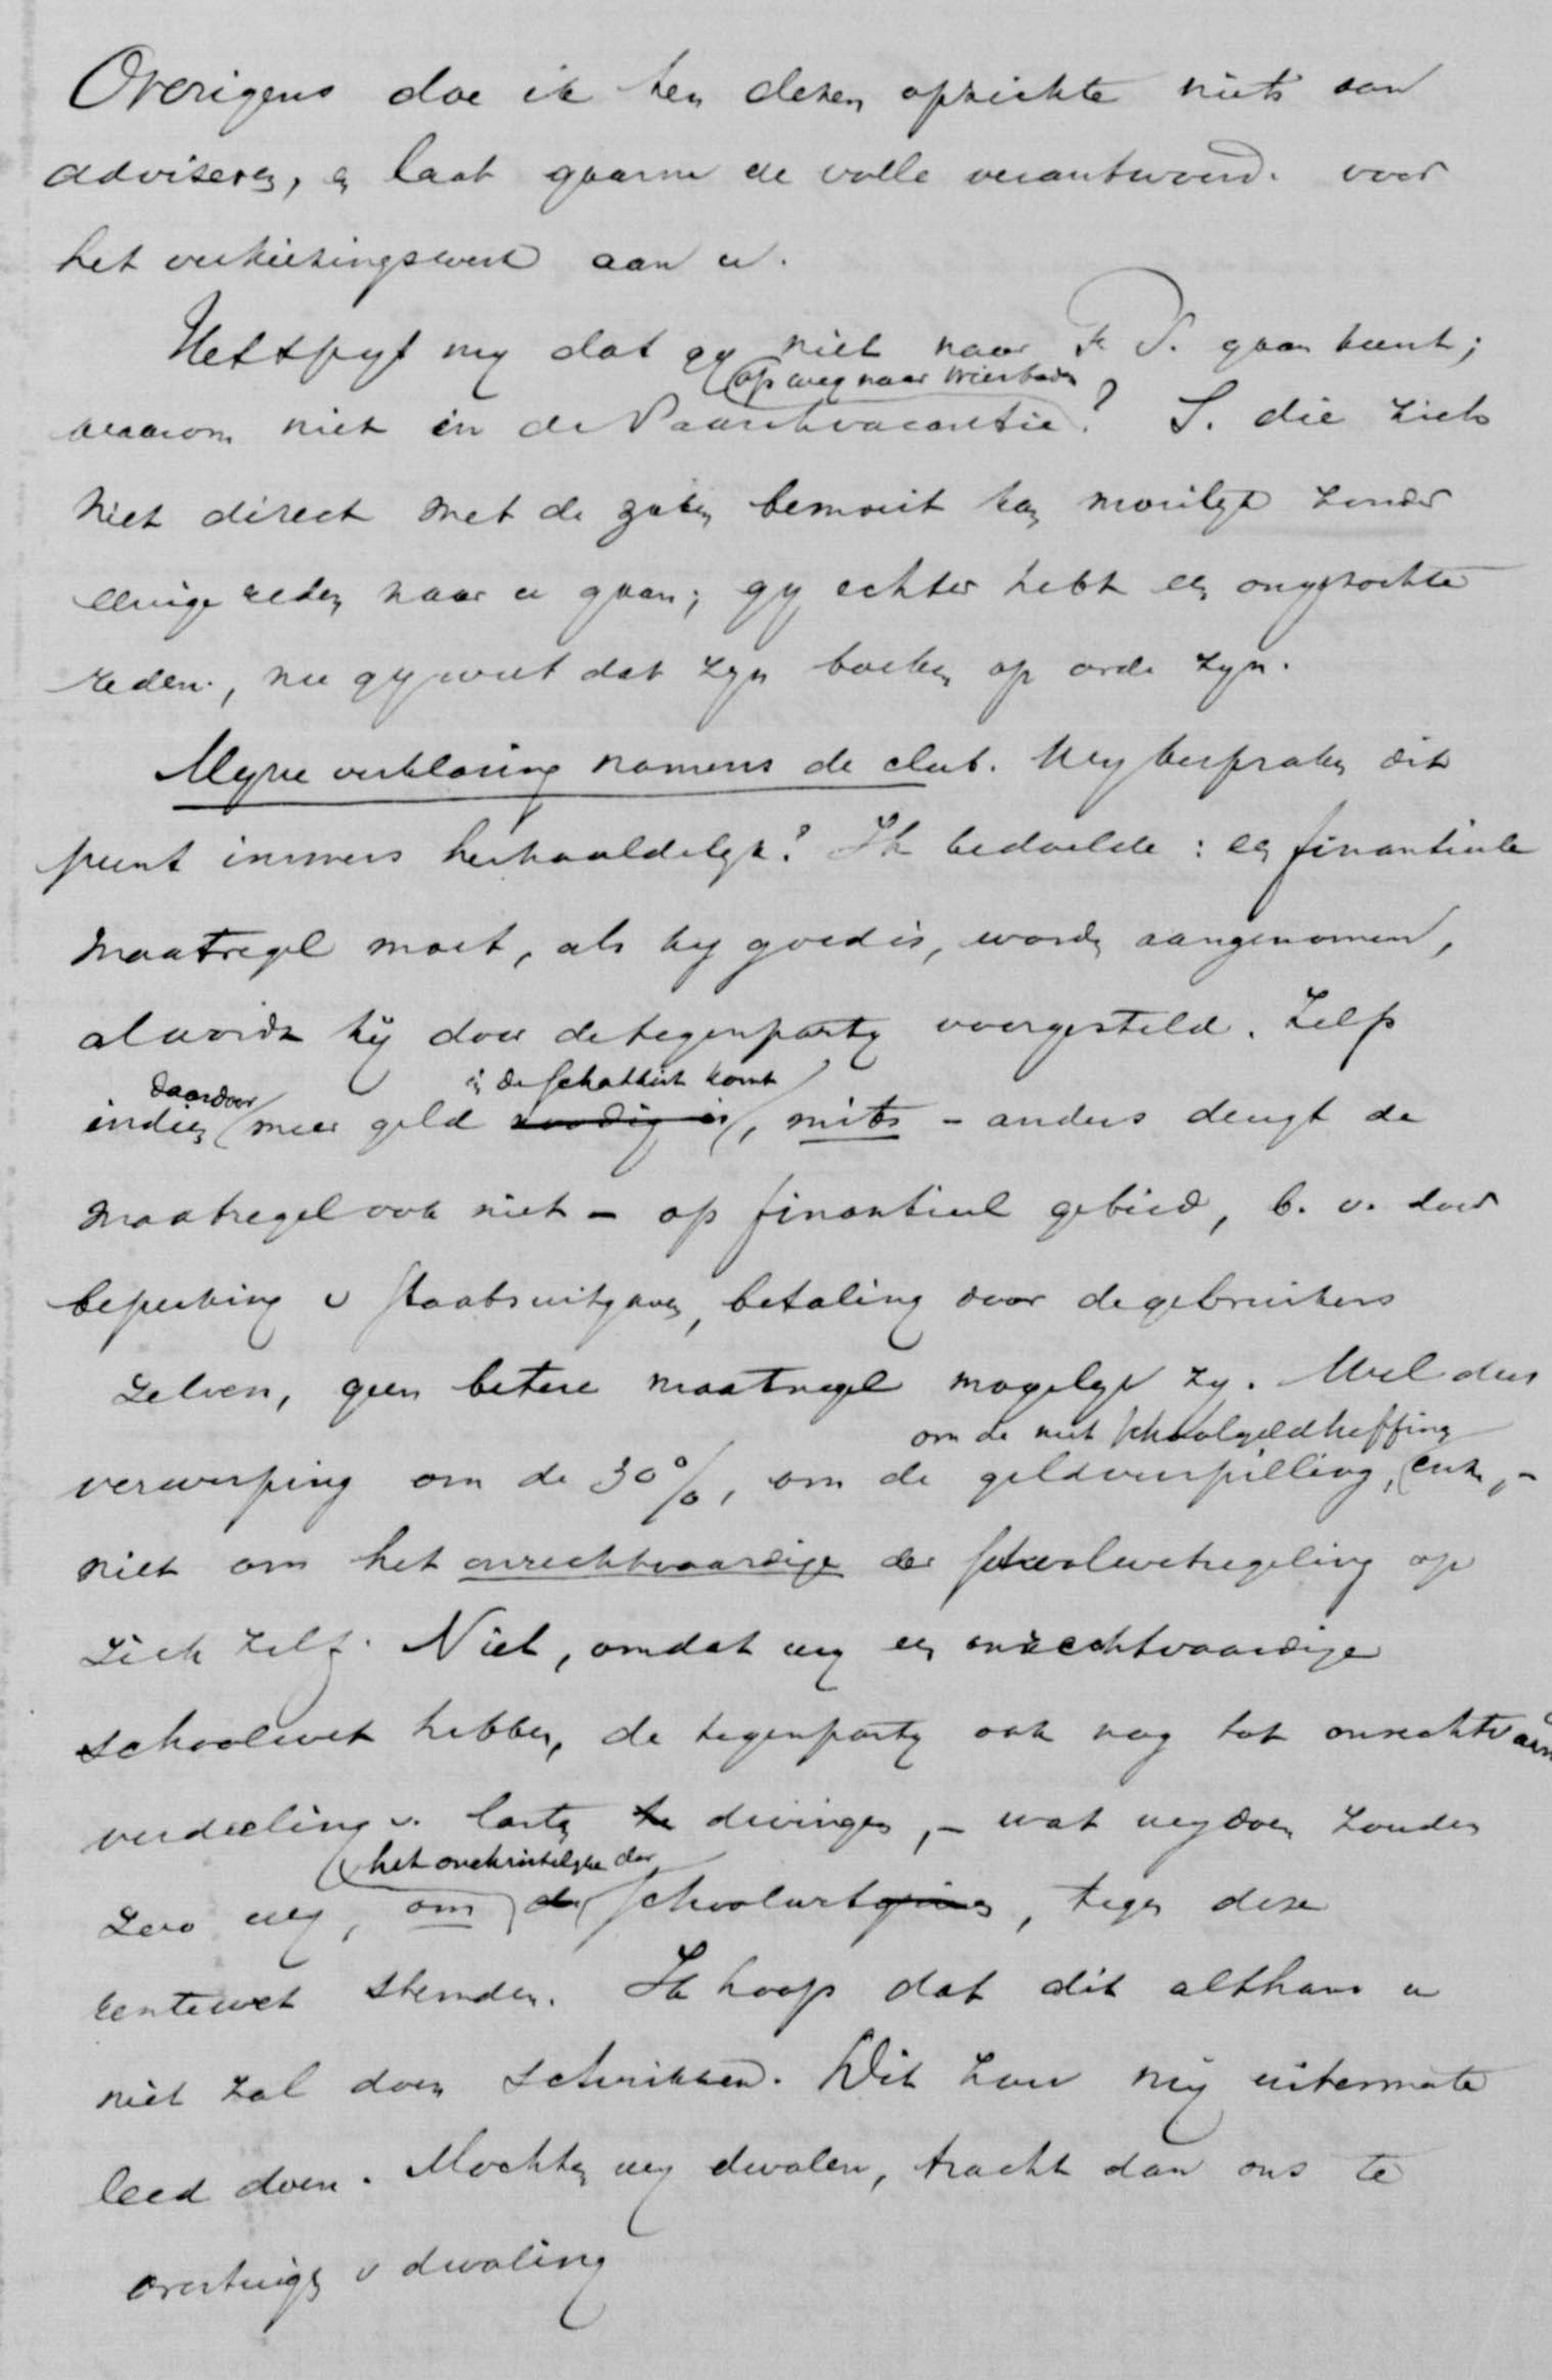 Overigens doe ik ten dezen opzichte niets aan
adviseren, en laat gaarne de volle verantwoord. voor
het verkiezingswerk aan u.
Het spyt my dat gy niet naar F. S. gaan kunt;
op weg naar Wiesbaden
waarom niet in de Paaschvacantie? S. die zich
niet direct met de zaken bemoeit kan moeilyk zonder
eenige reden naar u gaan; gy echter hebt een ongezochte
reden, nu gy weet dat zyn boeken op orde zyn.
Myne verklaring namens de club. Wy bespraken dit
punt immers herhaaldelyk? Ik bedoelde: een finantieele
maatregel moet, als hy goed is, worden aangenomen,
al wordt hy door de tegenparty voorgesteld. Zelfs
daardoor in de schatkist komt
indien meer geld noodig is, mits - anders deugt de
maatregel ook niet - op finantieel gebied, b. v. door
beperking v staatsuitgaven, betaling door de gebruikers
zelven, geen betere maatregel mogelyk zy. Wel dus
om de niet schoolgeldheffing
verwerping om de 30%, om de geldverspilling, enz, -
niet om het onrechtvaardige der schoolwetregeling op
zich zelf. Niet, omdat wy een onrechtvaardige
schoolwet hebben, de tegenparty ook nog tot onrechtvaard
verdeeling v. lasten te dwingen, - wat wy doen zouden
het onchristelyke der
zoo wy, om de schoolwet, tegen deze
rentewet stemden. Ik hoop dat dit althans u
niet zal doen schrikken. Dit zou my uitermate
leed doen. Mochten wy dwalen, tracht dan ons te
overtuigen v dwaling